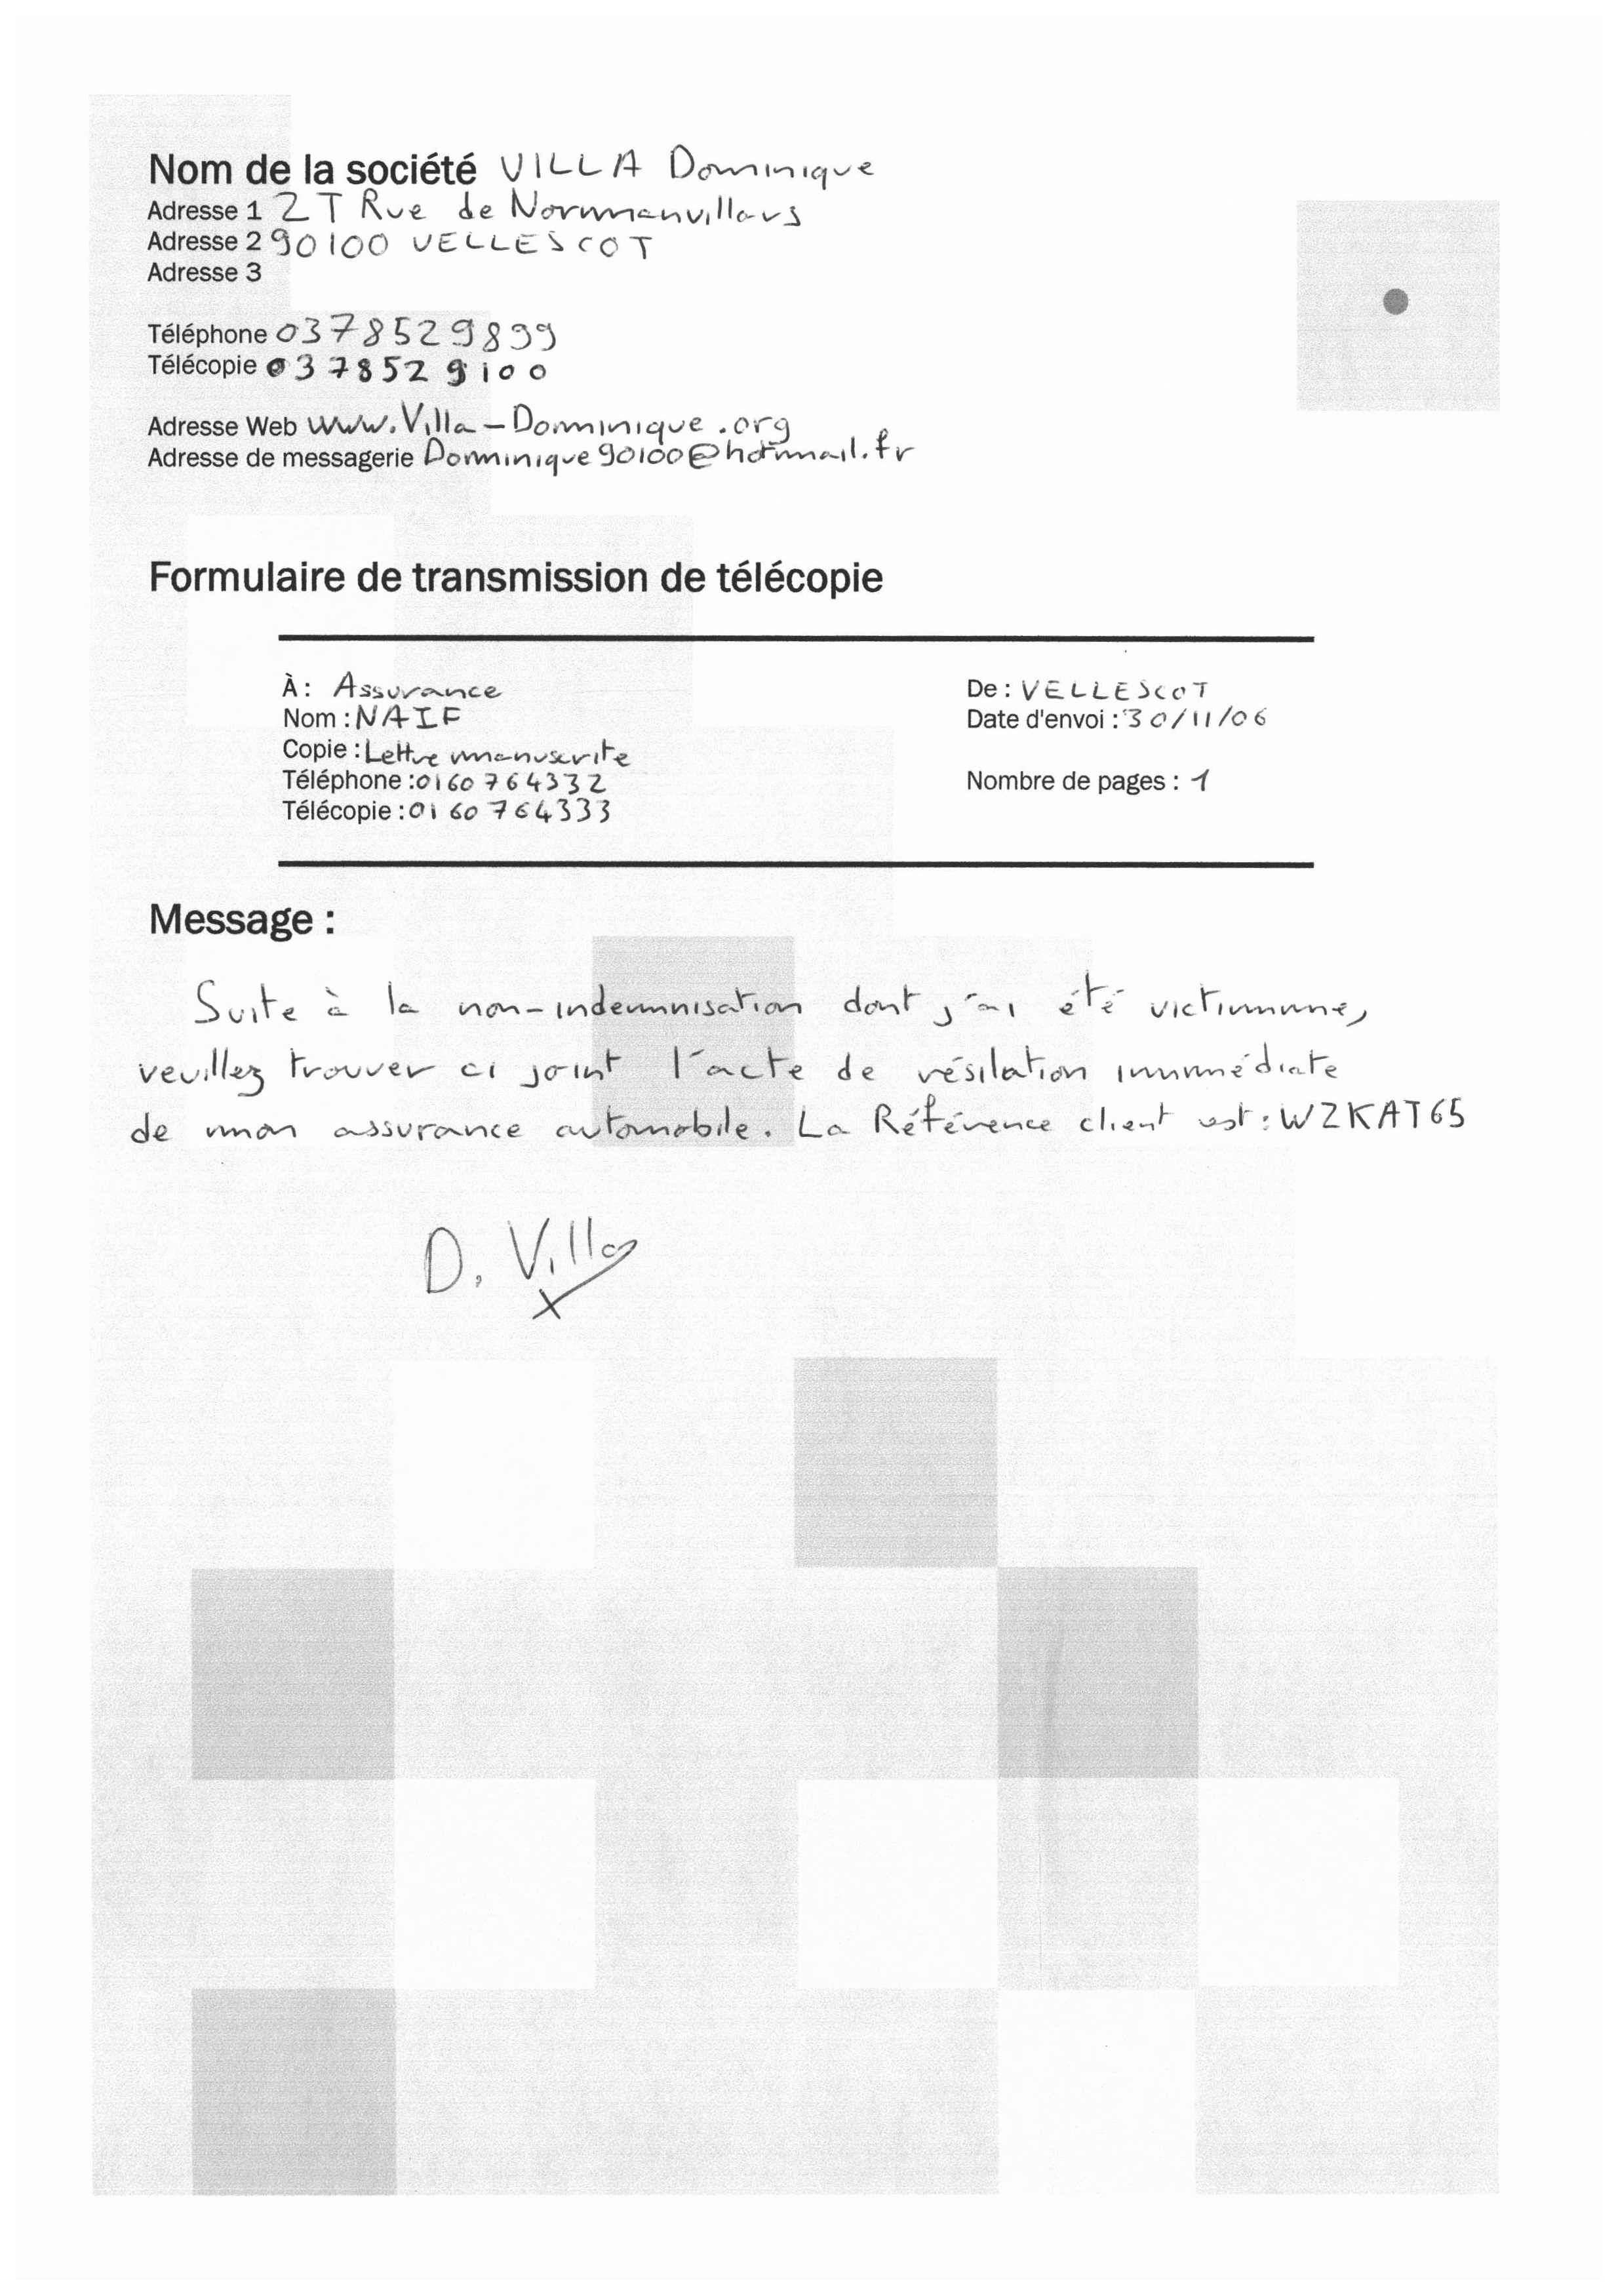 Nom de la société VILLA Dominique
Adresse 1 2 T Rue de Normanvillars
Adresse 2 90100 VELLESCOT
Adresse 3
Téléphone 0378529899
Télécopie 0378529100
Adresse Web www.Villa-Dominique.org
Adresse de messagerie Dominique90100@hotmail.fr
Formulaire de transmission de télécopie
À : Assurance
Nom : NAIF
Copie : Lettre manuscrite
Téléphone : 0160764332
Télécopie : 0160764333
De : VELLESCOT
Date d'envoi : 30/11/06
Nombre de pages : 1
Message :
Suite à la non-indemnisation dont j'ai été victime,
veuillez trouver ci joint l'acte de résilation immédiate
de mon assurance automobile. La Référence client est : WZKAT65
D. Villa